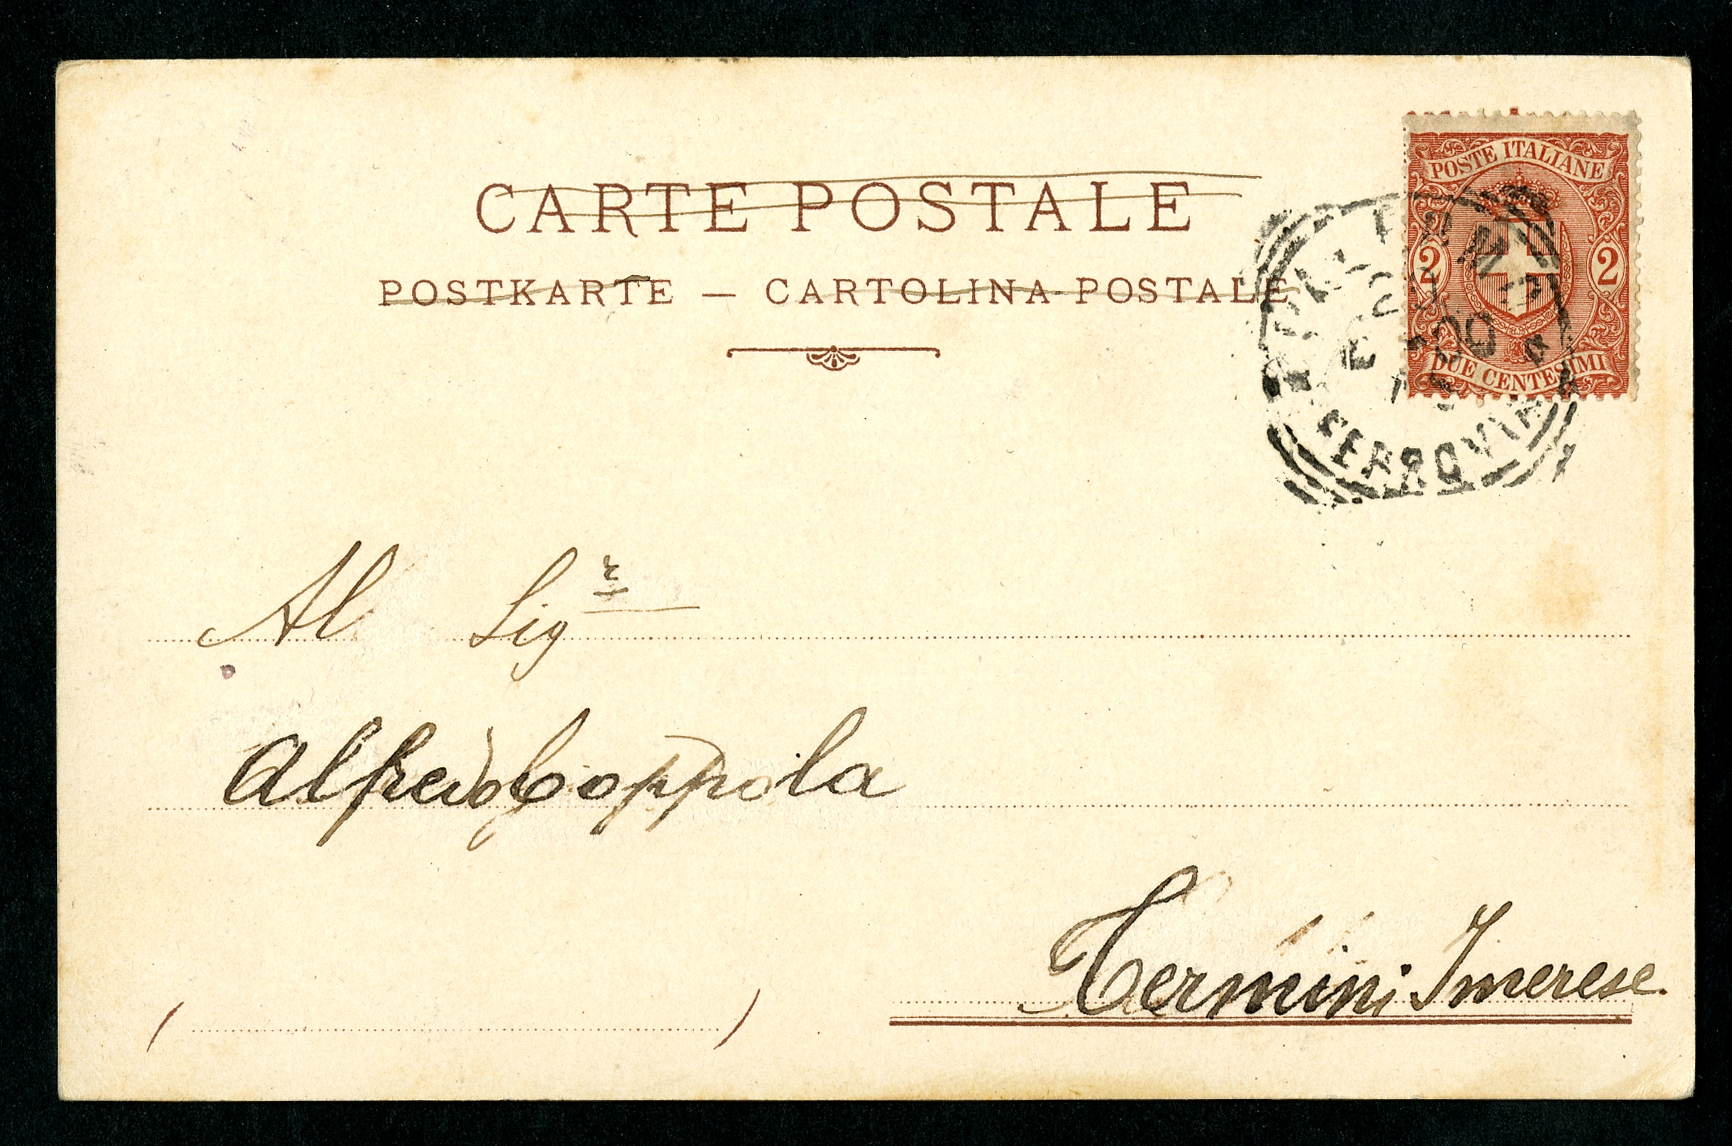 CARTE POSTALE
POSTKARTE — CARTOLINA-POSTALE
POSTE ITALIANE
2 2
DUE CENTESIMI
FERROVIA
Al Sigr
Alfredo Coppola
Termini Imerese.
( )